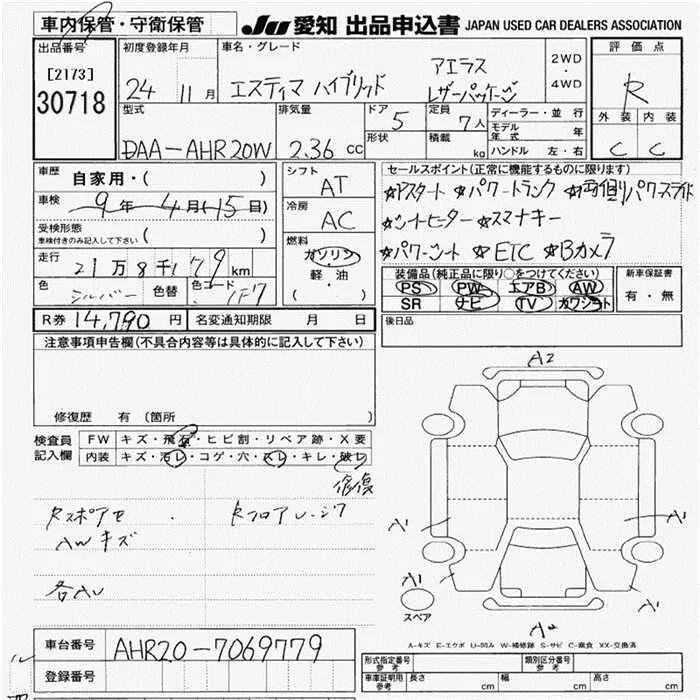 車内保管・守衛保管
JU 愛知 出品申込書 JAPAN USED CAR DEALERS ASSOCIATION
出品番号 初度登録年月 車名・グレード 2WD ・ 4WD 評価点
[2173]
30718
24 11月 エスティマ ハイブリッド アエラス
レザーパッケージ
R
型式 排気量 ドア 5 定員 7人 ディーラー・並行
外装 内装
DAA-AHR20W 2.36cc 形状 積載 kg モデル年式 年
ハンドル 左・右
C C
車歴 自家用・( ) シフト AT セールスポイント(正常に機能するものに限ります)
車検 9年4月(15日) 冷房 AC
☆Pスタート ☆パワートランク ☆両側パワースライド
☆シートヒーター ☆スマナキー
☆パワーシート ☆ETC ☆Bカメラ
受検形態 ( )
車検付きのみ記入して下さい
燃料 ガソリン・軽・油 ( )
走行 21万8千179km
色 シルバー 色替 色コード 1F7
装備品(純正品に限り○をつけてください) 新車保証書
PS PW エアB AW 有・無
SR ナビ TV カワシート
R券 14,790円 名変通知期限 月 日 後日品
注意事項申告欄(不具合内容等は具体的に記入して下さい)
修復歴 有 〔箇所 〕
検査員 FW キズ・飛石・ヒビ割・リペア跡・X要
記入欄 内装 キズ・汚レ・コゲ・穴・スレ・キレ・破レ
修復
Rスポアセ RフロアレージP
AWキズ
各AU
A2
A1 A1
A1 A1
スペア
A2
A-キズ E-エクボ U-凹み W-補修跡 S-サビ C-腐食 XX-交換済
車台番号 AHR20-7069779
登録番号
形式指定番号 参考 類別区分番号 参考
車庫証明用 参考 長さ cm 幅 cm 高さ cm